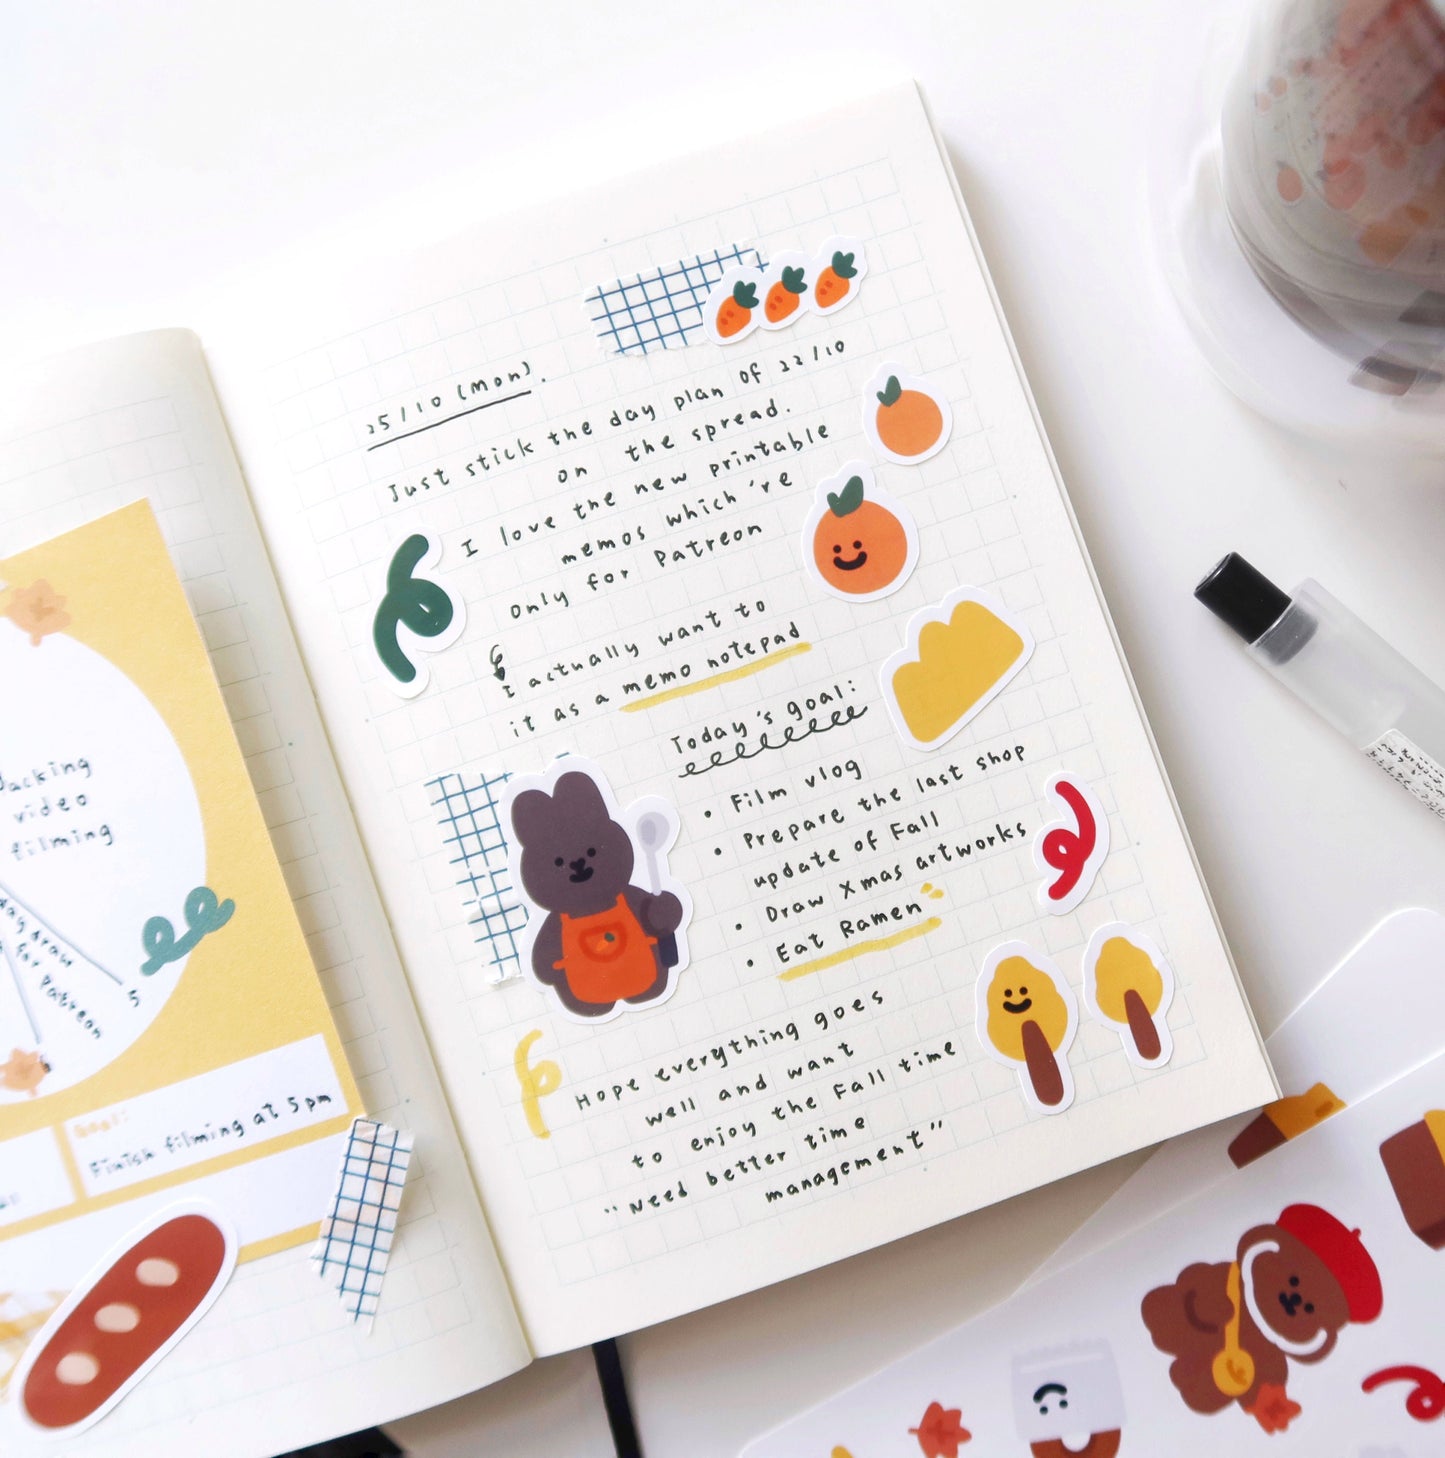 packing
video
filming
day draw
for patreon
5
Goal:
Finish filming at 5pm
25/10 (Mon).
Just stick the day plan of 22/10
on the spread.
I love the new printable
memos which're
only for Patreon
I actually want to
it as a memo notepad
Today's goal:
• Film vlog
• Prepare the last shop
update of Fall
• Draw Xmas artworks
• Eat Ramen
Hope everything goes
well and want
to enjoy the Fall time
"Need better time
management"